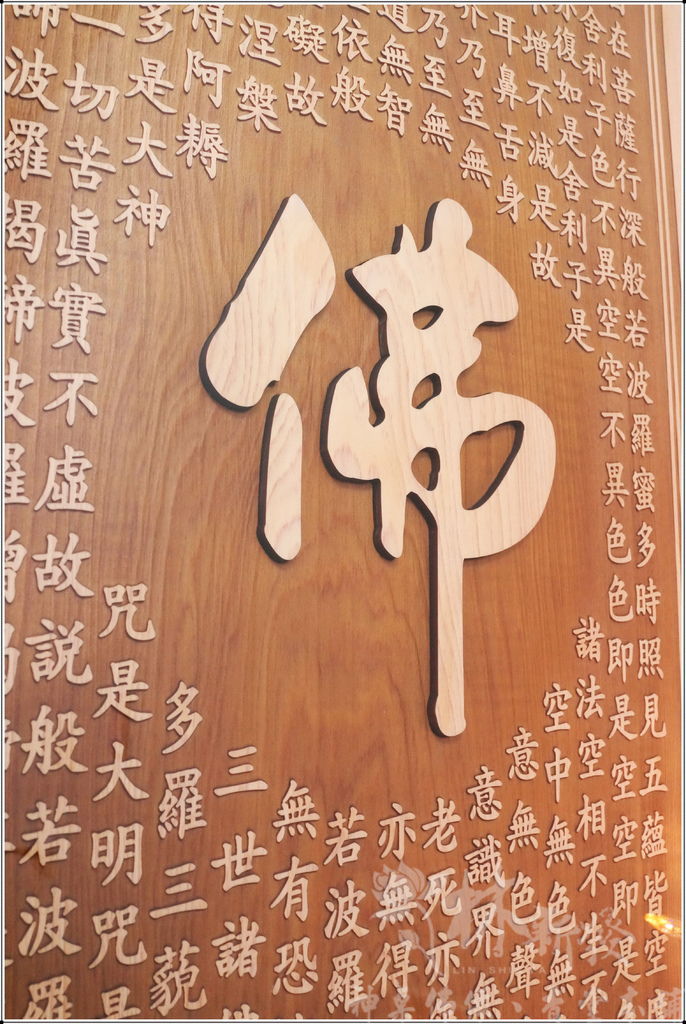 在菩薩行深般若波羅蜜多時照見五蘊皆空
舍利子色不異空空不異色色即是空空即是
亦復如是舍利子是
諸法空相不生不
增不減是故
空中無色無
耳鼻舌身
意無色聲
乃至無
意識界無
乃至無
老死亦
道無智
亦無得
依般
若波羅
礙故
無有恐
涅槃
三世諸
得阿耨
多羅三藐
多是大神
咒是大明咒是
一切苦真實不虛故說般若波羅
諦波羅揭諦波羅僧
佛